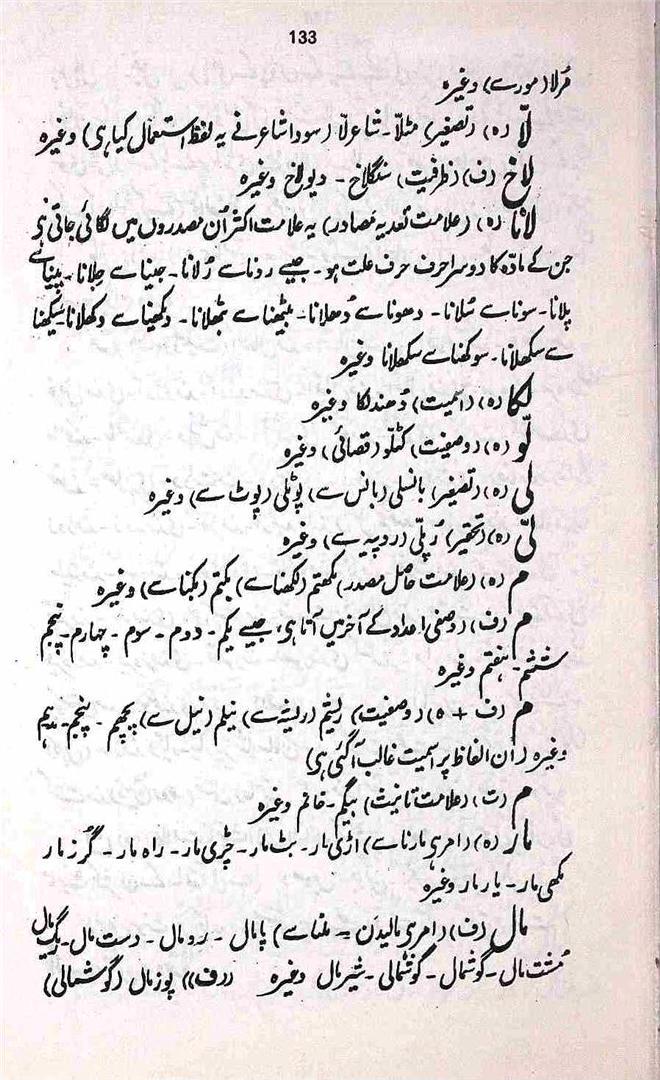 133
مُرلا (مورے) وغیرہ
لّا (ہ) (تصغیر) مثلاً۔ شاعرلّا (سودا شاعر نے یہ لفظ استعمال کیا ہی) وغیرہ
لاخ (ف) (ظرفیت) سنگلاخ ۔ دیولاخ وغیرہ
لانا (ہ) (علامت تعدیہ مصادر) یہ علامت اکثر اُن مصدروں میں لگائی جاتی ہی
جن کے مادّہ کا دوسرا حرف حرف علت ہو۔ جیسے رونا سے رُلانا۔ جینا سے جِلانا۔ پینا سے
پلانا۔ سونا سے سُلانا۔ دھونا سے دُھلانا۔ بیٹھنا سے بٹھلانا۔ دکھینا سے دکھلانا۔ سیکھنا
سے سکھلانا۔ سوکھنا سے سکھلانا وغیرہ
لکا (ہ) (اسمیت) دُھندلکا وغیرہ
لّو (ہ) (وصفیت) کٹلّو (قصائی) وغیرہ
لی (ہ) (تصغیر) بانسلی (بانس سے) پوٹلی (پوٹ سے) وغیرہ
لّی (ہ) (تحقیر) رُپلّی (روپیہ سے) وغیرہ
م (ہ) (علامت حاصل مصدر) لکھتم (لکھنا سے) بکتم (بکنا سے) وغیرہ
م (ف) (وصفی) اعداد کے آخر میں آتا ہی، جیسے یکم۔ دوم ۔ سوم ۔ چہارم۔ پنجم
ششم۔ ہفتم وغیرہ
م (ف + ہ) (وصفیت) ریشم (ریشہ سے) نیلم (نیل سے) پچھم ۔ پنجم۔
وغیرہ (ان الفاظ پر اسمیت غالب آگئی ہی)
م (ت) (علامت تانیث) بیگم۔ خانم وغیرہ
مار (ہ) (امر ہی مارنا سے) اڑی مار۔ بٹ مار۔ چڑی مار۔ راہ مار۔ گُرز مار
مکھی مار۔ یار مار وغیرہ
مال (ف) (امر ہی مالیدن = ملنا سے) پامال ۔ رومال ۔ دست مال۔ ریگ مال
مُشت مال۔ گوشمال۔ گوشمالی۔ شیرمال وغیرہ ((ف)) پوزمال (گوشمالی)